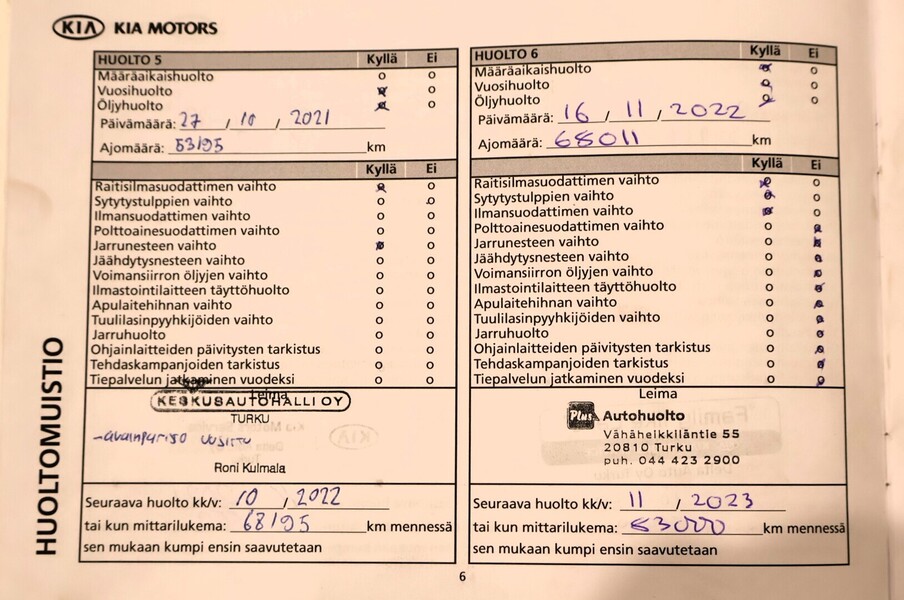 KIA KIA MOTORS
HUOLTO 5 Kyllä Ei
Määräaikaishuolto o o
Vuosihuolto o
Öljyhuolto o
Päivämäärä: 27 / 10 / 2021
Ajomäärä: 53195 km
Kyllä Ei
Raitisilmasuodattimen vaihto o
Sytytystulppien vaihto o o
Ilmansuodattimen vaihto o o
Polttoainesuodattimen vaihto o o
Jarrunesteen vaihto o
Jäähdytysnesteen vaihto o o
Voimansiirron öljyjen vaihto o o
Ilmastointilaitteen täyttöhuolto o o
Apulaitehihnan vaihto o o
Tuulilasinpyyhkijöiden vaihto o o
Jarruhuolto o o
Ohjainlaitteiden päivitysten tarkistus o o
Tehdaskampanjoiden tarkistus o o
Tiepalvelun jatkaminen vuodeksi o o
Leima
KESKUSAUTOHALLI OY
TURKU
-avainparisto uusittu
Roni Kulmala
Seuraava huolto kk/v: 10 / 2022
tai kun mittarilukema: 68195 km mennessä
sen mukaan kumpi ensin saavutetaan
HUOLTO 6 Kyllä Ei
Määräaikaishuolto o
Vuosihuolto o
Öljyhuolto o
Päivämäärä: 16 / 11 / 2022
Ajomäärä: 68011 km
Kyllä Ei
Raitisilmasuodattimen vaihto o
Sytytystulppien vaihto o
Ilmansuodattimen vaihto o
Polttoainesuodattimen vaihto o
Jarrunesteen vaihto o
Jäähdytysnesteen vaihto o
Voimansiirron öljyjen vaihto o
Ilmastointilaitteen täyttöhuolto o
Apulaitehihnan vaihto o
Tuulilasinpyyhkijöiden vaihto o
Jarruhuolto o
Ohjainlaitteiden päivitysten tarkistus o
Tehdaskampanjoiden tarkistus o
Tiepalvelun jatkaminen vuodeksi o
Leima
Plus Autohuolto
Vähäheikkiläntie 55
20810 Turku
puh. 044 423 2900
Seuraava huolto kk/v: 11 / 2023
tai kun mittarilukema: 83000 km mennessä
sen mukaan kumpi ensin saavutetaan
HUOLTOMUISTIO
6